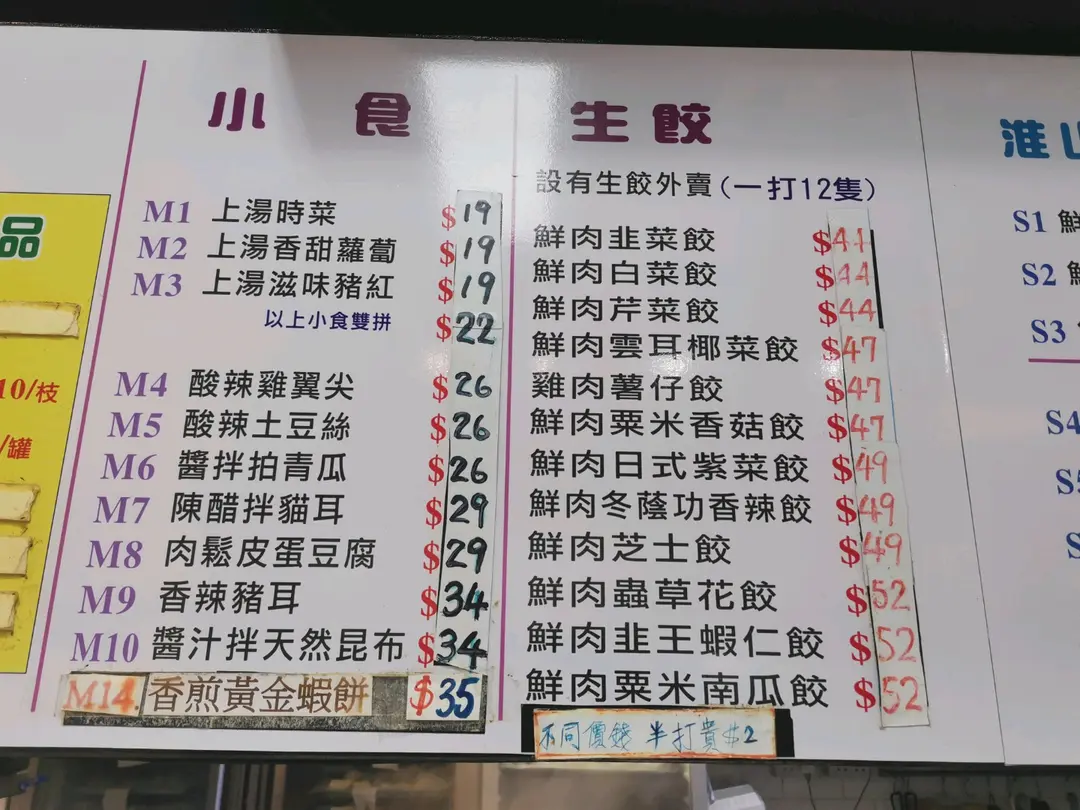 品
10/枝
/罐
小食
M1 上湯時菜 $19
M2 上湯香甜蘿蔔 $19
M3 上湯滋味豬紅 $19
以上小食雙拼 $22
M4 酸辣雞翼尖 $26
M5 酸辣土豆絲 $26
M6 醬拌拍青瓜 $26
M7 陳醋拌貓耳 $29
M8 肉鬆皮蛋豆腐 $29
M9 香辣豬耳 $34
M10 醬汁拌天然昆布 $34
M14. 香煎黃金蝦餅 $35
生餃
設有生餃外賣(一打12隻)
鮮肉韭菜餃 $44
鮮肉白菜餃 $44
鮮肉芹菜餃 $44
鮮肉雲耳椰菜餃 $47
雞肉薯仔餃 $47
鮮肉粟米香菇餃 $47
鮮肉日式紫菜餃 $49
鮮肉冬蔭功香辣餃 $49
鮮肉芝士餃 $49
鮮肉蟲草花餃 $52
鮮肉韭王蝦仁餃 $52
鮮肉粟米南瓜餃 $52
不同價錢 半打貴$2
淮山
S1 鮮
S2 鮮
S3
S4